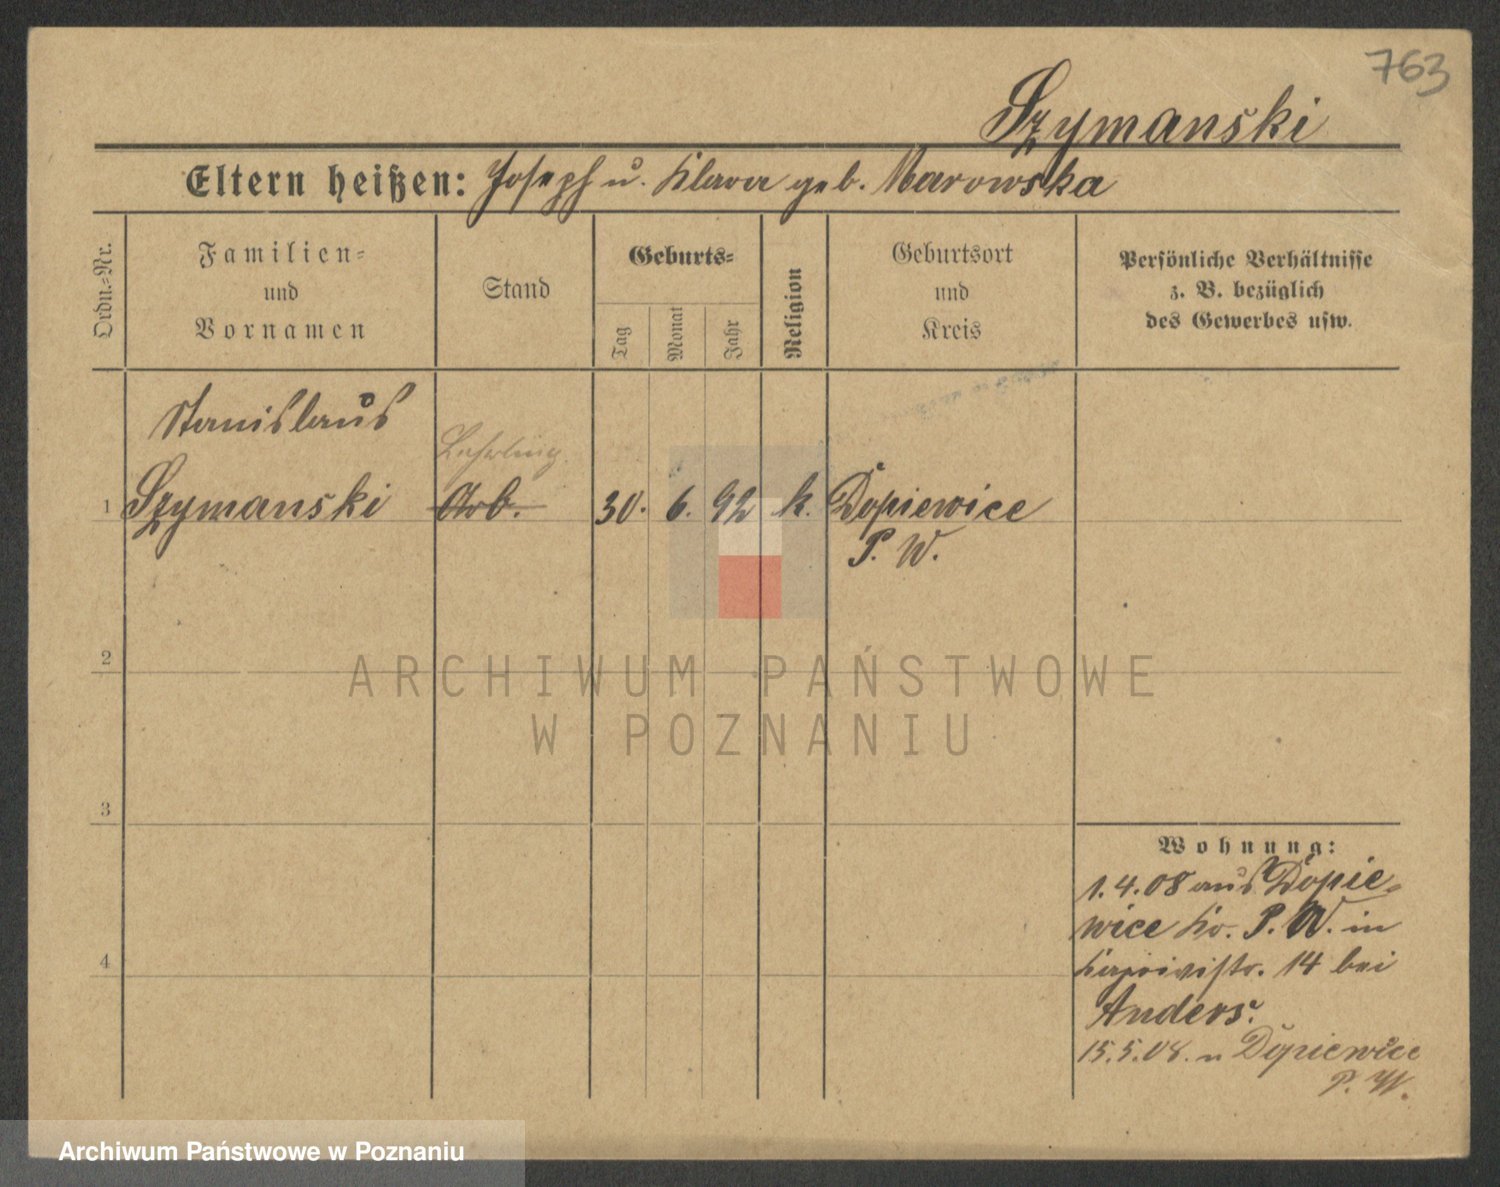 763
Szymanski
Eltern heißen: Joseph u. Klara geb. Marowska
Ordn.-Nr.
Familien-
und
Vornamen
Stand
Geburts-
Tag
Monat
Jahr
Religion
Geburtsort
und
Kreis
Persönliche Verhältnisse
z. B. bezüglich
des Gewerbes usw.
Stanislaus
Lehrling
1 Szymanski Arb. 30. 6. 92 k. Dopiewice
P. W.
2
ARCHIWUM PAŃSTWOWE
W POZNANIU
3
Wohnung:
1.4.08 aus Dopie-
wice Kr. P. W. in
14 bei
Anders.
4
15.5.08. n Dopiewice
P. W.
Archiwum Państwowe w Poznaniu